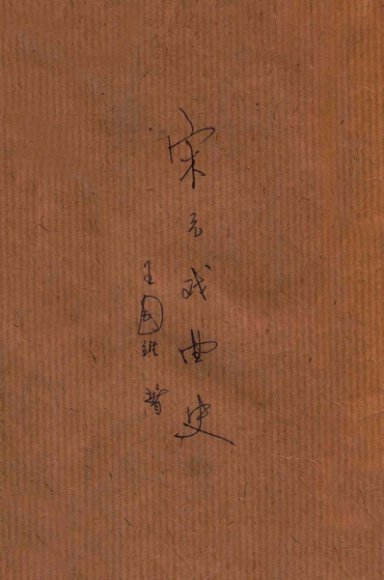 宋元戏曲史
王国维 著